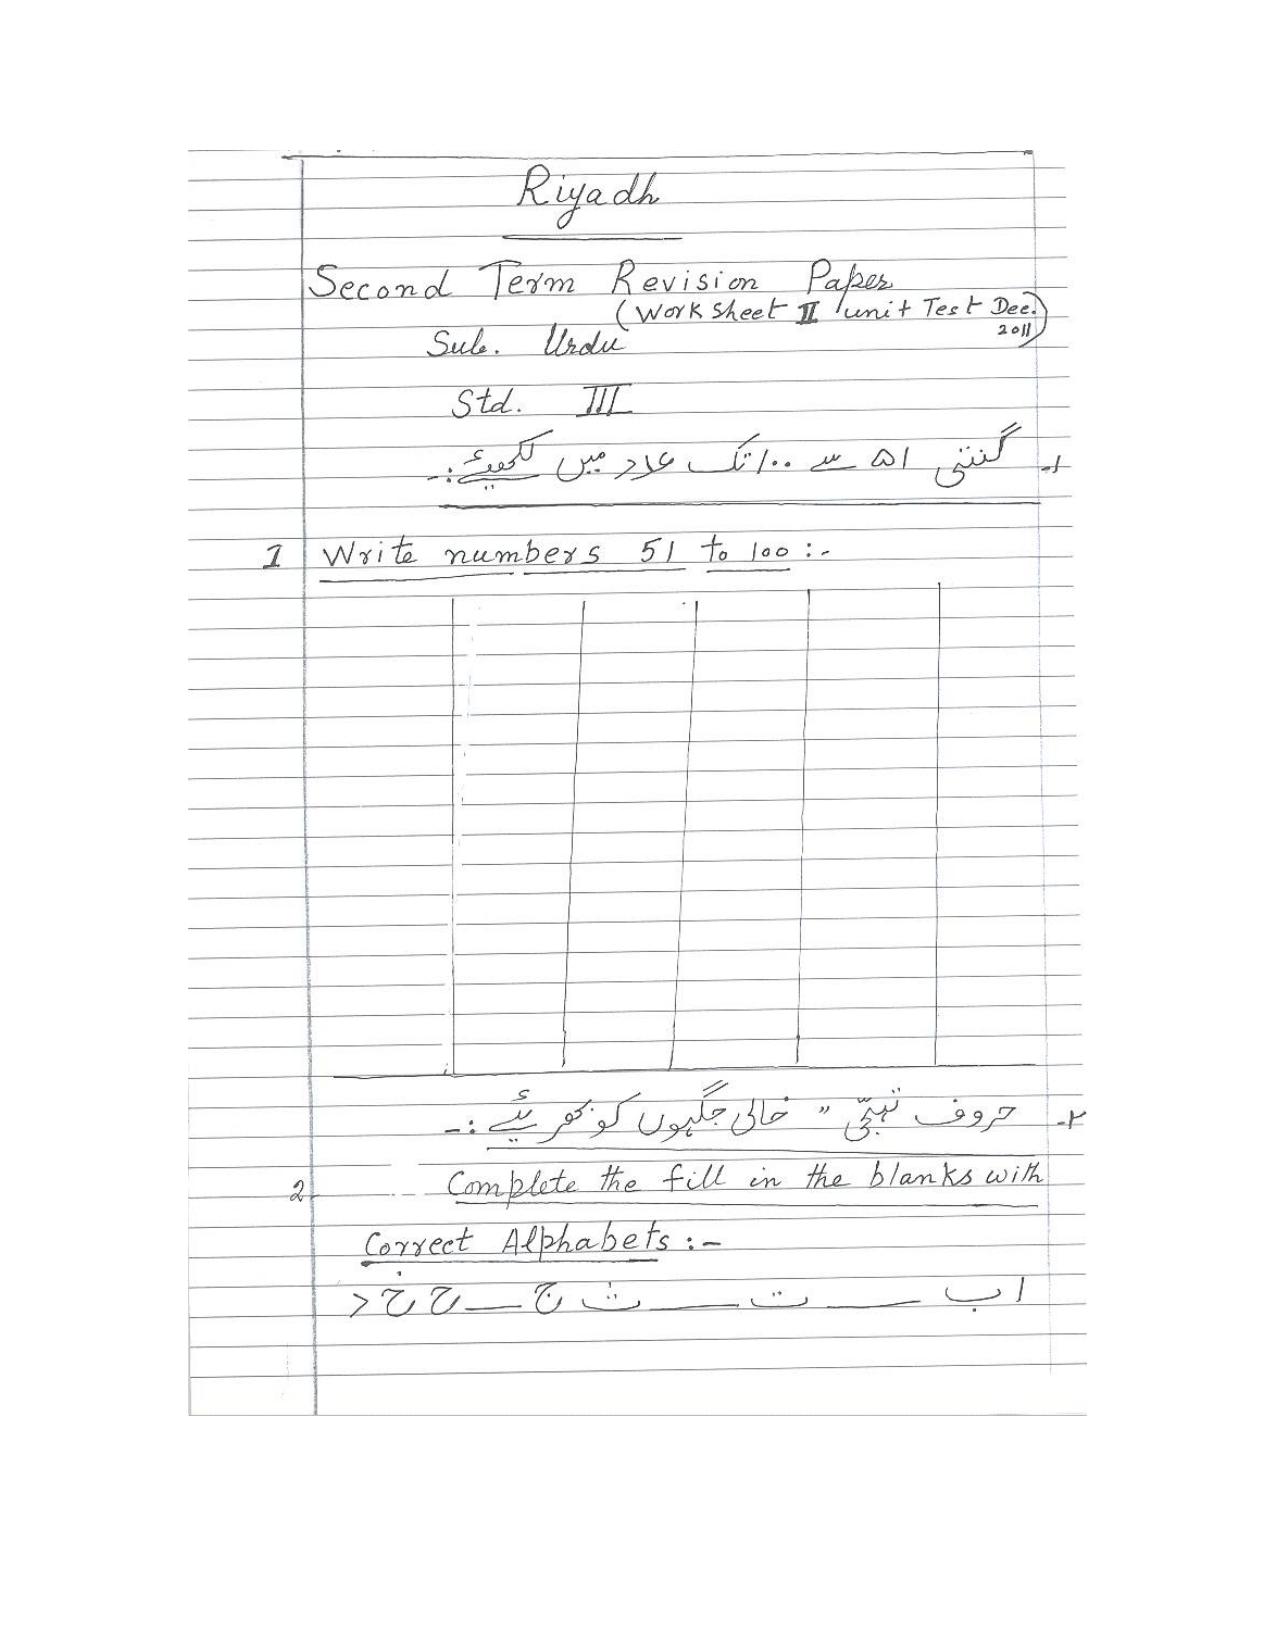 Riyadh
Second Term Revision Paper
(Work Sheet II unit Test Dec. 2011)
Sub. Urdu
Std. III
۱- گنتی ۵۱ سے ۱۰۰ تک عدد میں لکھیئے:-
1 Write numbers 51 to 100:-
۲- حروف تہجّی " خالی جگہوں کو بھریئے:-
2 Complete the fill in the blanks with
Correct Alphabets:-
ا ب ___ ت ___ ث ج ___ ح خ د